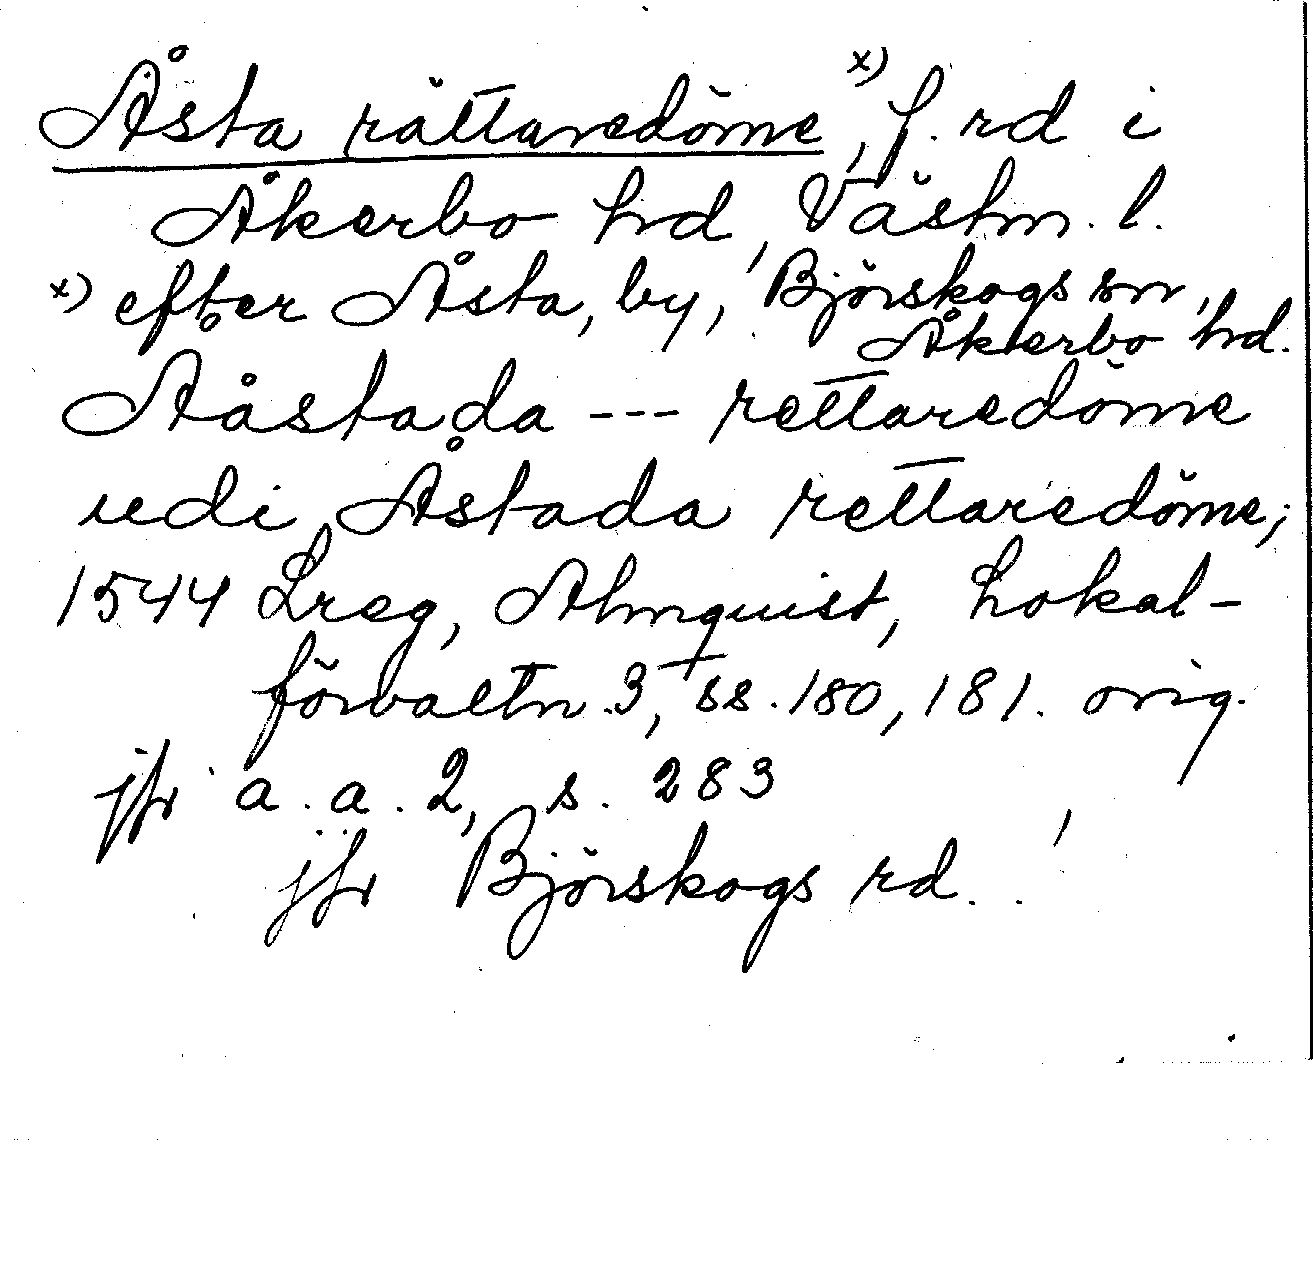 Åsta rättaredöme x), f. rd i
Åkerbo hrd, Västm. l.
x) efter Åsta, by, Björskogs sn,
Åkerbo hrd.
Aåstada --- rettaredöme
udi Åstada rettaredöme;
1544 Lreg, Almquist, Lokal-
förvaltn. 3, ss. 180, 181. orig.
jfr a. a. 2, s. 283
jfr Björskogs rd.